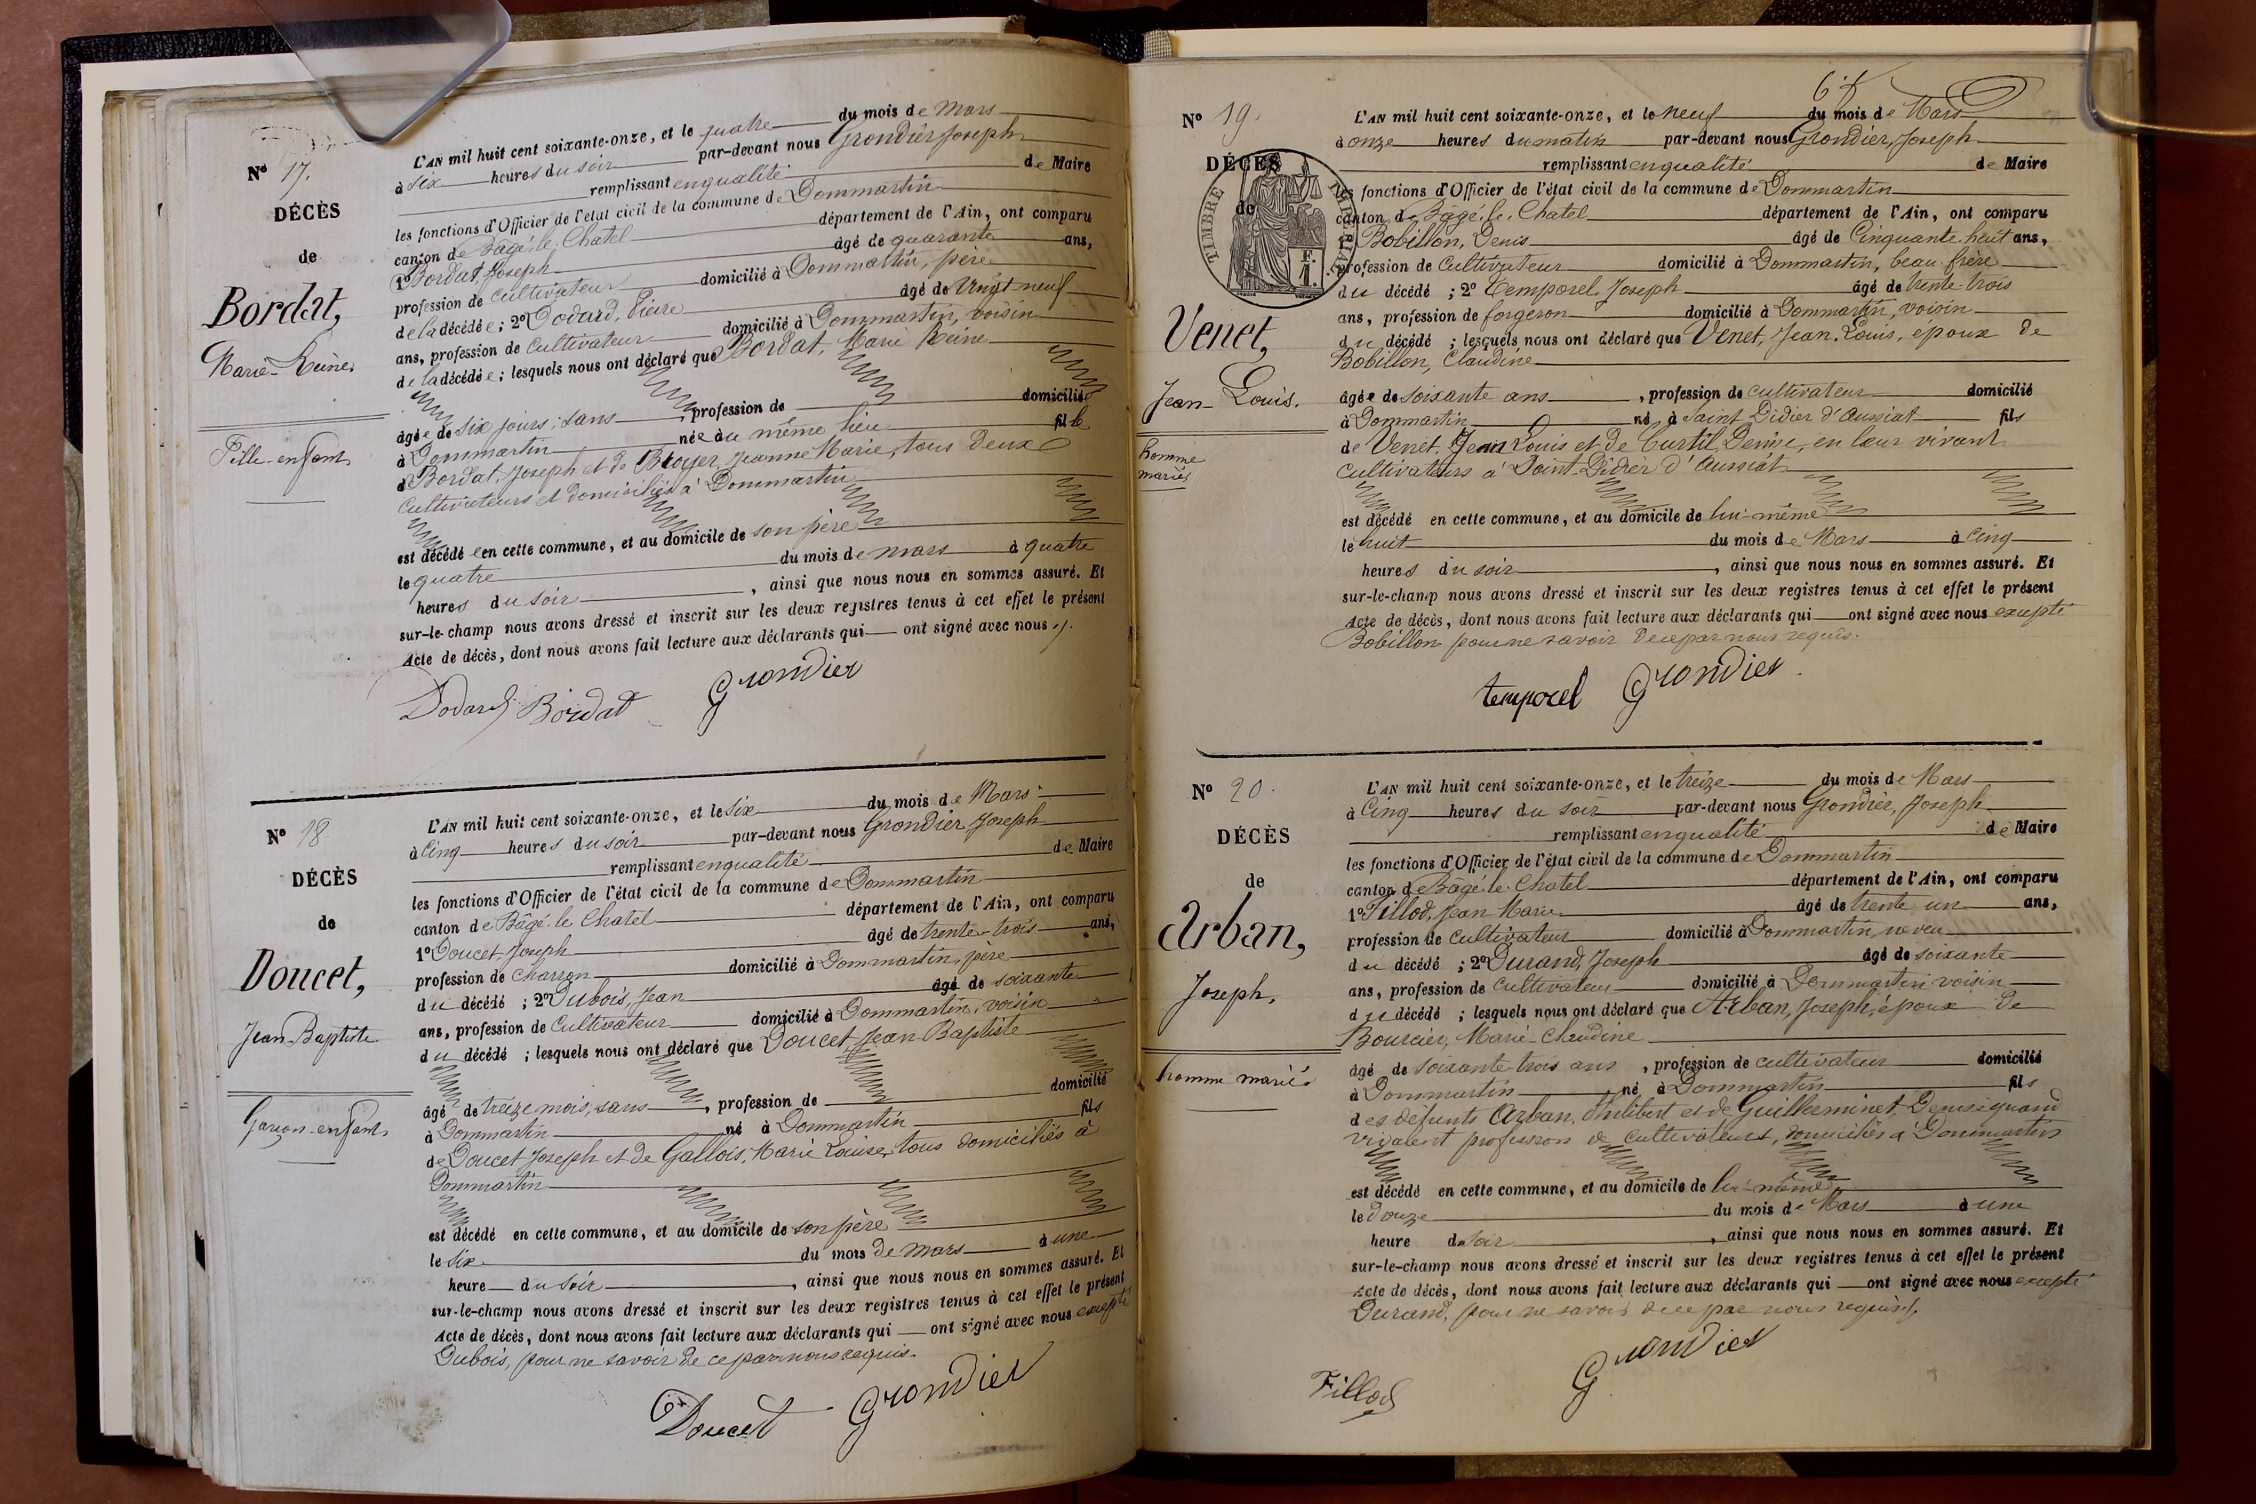 N° 17.
DÉCÈS
de
Bordat,
Marie-Reine
Fille-enfant
L'AN mil huit cent soixante-onze, et le quatre du mois de Mars
à six heures du soir par-devant nous Grondier Joseph
remplissant en qualité de Maire
les fonctions d'Officier de l'état civil de la commune de Dommartin
canton de Bâgé-le-Chatel département de l'Ain, ont comparu
1° Bordat, Joseph âgé de quarante ans,
profession de cultivateur domicilié à Dommartin, père
de la décédée ; 2° Dodard, Pierre âgé de vingt neuf
ans, profession de cultivateur domicilié à Dommartin, voisin
de la décédée ; lesquels nous ont déclaré que Bordat, Marie Reine
âgée de six jours, sans profession de domicilié
à Dommartin née au même lieu fille
de Bordat, Joseph et de Broyer, Jeanne Marie, tous deux
cultivateurs et domiciliés à Dommartin
est décédée en cette commune, et au domicile de son père
le quatre du mois de mars à quatre
heures du soir , ainsi que nous nous en sommes assuré. Et
sur-le-champ nous avons dressé et inscrit sur les deux registres tenus à cet effet le présent
Acte de décès, dont nous avons fait lecture aux déclarants qui ont signé avec nous
Dodard Bordat Grondier
N° 18
DÉCÈS
de
Doucet,
Jean-Baptiste
Garçon-enfant
L'AN mil huit cent soixante-onze, et le six du mois de Mars
à cinq heures du soir par-devant nous Grondier Joseph
remplissant en qualité de Maire
les fonctions d'Officier de l'état civil de la commune de Dommartin
canton de Bâgé-le-Chatel département de l'Ain, ont comparu
1° Doucet, Joseph âgé de trente-trois ans,
profession de charron domicilié à Dommartin, père
du décédé ; 2° Dubois, Jean âgé de soixante
ans, profession de cultivateur domicilié à Dommartin, voisin
du décédé ; lesquels nous ont déclaré que Doucet Jean Baptiste
âgé de treize mois, sans , profession de domicilié
à Dommartin né à Dommartin fils
de Doucet Joseph et de Gallois, Marie Louise, tous domiciliés à
Dommartin
est décédé en cette commune, et au domicile de son père
le six du mois de mars à une
heure du soir , ainsi que nous nous en sommes assuré. Et
sur-le-champ nous avons dressé et inscrit sur les deux registres tenus à cet effet le présent
Acte de décès, dont nous avons fait lecture aux déclarants qui ont signé avec nous excepté
Dubois, pour ne savoir de ce par nous requis.
Doucet Grondier
N° 19.
DÉCÈS
de
TIMBRE IMPÉRIAL
1 F.
Venet,
Jean-Louis.
homme
marié
L'AN mil huit cent soixante-onze, et le neuf du mois de Mars
à onze heures du matin par-devant nous Grondier, Joseph
remplissant en qualité de Maire
les fonctions d'Officier de l'état civil de la commune de Dommartin
canton de Bâgé-le-Chatel département de l'Ain, ont comparu
1° Bobillon, Denis âgé de cinquante huit ans,
profession de cultivateur domicilié à Dommartin, beau-frère
du décédé ; 2° Temporel, Joseph âgé de trente-trois
ans, profession de forgeron domicilié à Dommartin, voisin
du décédé ; lesquels nous ont déclaré que Venet, Jean-Louis, époux de
Bobillon, Claudine
âgée de soixante ans , profession de cultivateur domicilié
à Dommartin né à Saint Didier d'Aussiat fils
de Venet, Jean Louis et de Curtil Denise, en leur vivant
cultivateurs à Saint-Didier d'Aussiat
est décédé en cette commune, et au domicile de lui-même
le huit du mois de Mars à cinq
heures du soir , ainsi que nous nous en sommes assuré. Et
sur-le-champ nous avons dressé et inscrit sur les deux registres tenus à cet effet le présent
Acte de décès, dont nous avons fait lecture aux déclarants qui ont signé avec nous excepté
Bobillon pour ne savoir de ce par nous requis.
temporel Grondier
N° 20.
DÉCÈS
de
Arban,
Joseph,
homme marié
L'AN mil huit cent soixante-onze, et le treize du mois de Mars
à cinq heures du soir par-devant nous Grondier, Joseph
remplissant en qualité de Maire
les fonctions d'Officier de l'état civil de la commune de Dommartin
canton de Bâgé-le-Chatel département de l'Ain, ont comparu
1° Fillod, Jean Marie âgé de trente un ans,
profession de cultivateur domicilié à Dommartin, neveu
du décédé ; 2° Durand, Joseph âgé de soixante
ans, profession de cultivateur domicilié à Dommartin voisin
du décédé ; lesquels nous ont déclaré que Arban, Joseph, époux de
Bourcier, Marie-Claudine
âgé de soixante trois ans , profession de cultivateur domicilié
à Dommartin né à Dommartin fils
des défunts Arban, Philibert et de Guilleminet, Denise quand
vivaient profession de cultivateurs, domiciliés à Dommartin
est décédé en cette commune, et au domicile de lui-même
le douze du mois de Mars à une
heure du soir , ainsi que nous nous en sommes assuré. Et
sur-le-champ nous avons dressé et inscrit sur les deux registres tenus à cet effet le présent
Acte de décès, dont nous avons fait lecture aux déclarants qui ont signé avec nous excepté
Durand, pour ne savoir de ce par nous requis.
Fillod Grondier